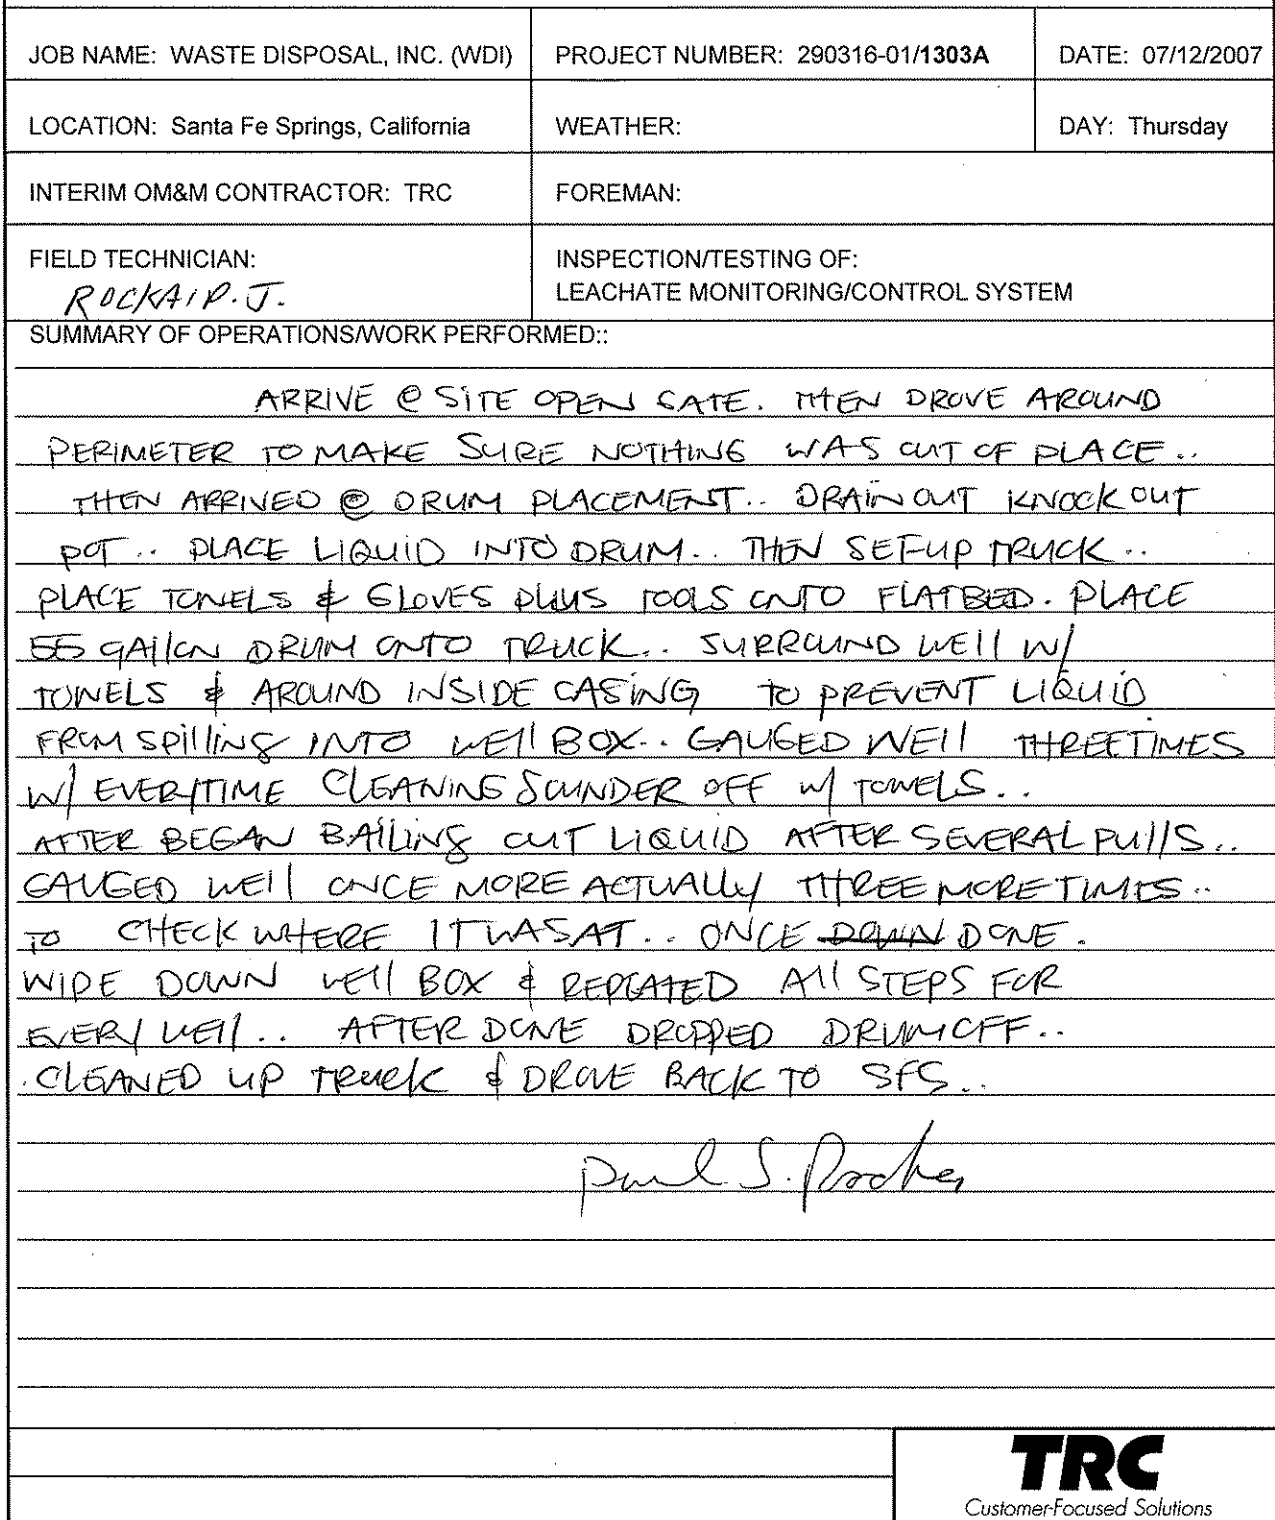 JOB NAME: WASTE DISPOSAL, INC. (WDI) PROJECT NUMBER: 290316-01/1303A DATE: 07/12/2007
LOCATION: Santa Fe Springs, California WEATHER: DAY: Thursday
INTERIM OM&M CONTRACTOR: TRC FOREMAN:
FIELD TECHNICIAN: INSPECTION/TESTING OF:
LEACHATE MONITORING/CONTROL SYSTEM
SUMMARY OF OPERATIONS/WORK PERFORMED::
ARRIVE @ SITE OPEN GATE. THEN DROVE AROUND
PERIMETER TO MAKE SURE NOTHING WAS OUT OF PLACE..
THEN ARRIVED @ DRUM PLACEMENT.. DRAIN OUT KNOCK OUT
POT.. PLACE LIQUID INTO DRUM.. THEN SET-UP TRUCK..
PLACE TOWELS & GLOVES PLUS TOOLS ONTO FLATBED. PLACE
55 GAllON DRUM ONTO TRUCK.. SURROUND WEll W/
TOWELS & AROUND INSIDE CASING TO PREVENT LIQUID
FROM SPilliNG INTO WEll BOX.. GAUGED WEll THREE TIMES
W/ EVERYTIME CLEANING SOUNDER OFF W/ TOWELS..
AFTER BEGAN BAILING OUT LIQUID AFTER SEVERAL PUllS..
GAUGED WEll ONCE MORE ACTUALLY THREE MORE TIMES..
TO CHECK WHERE IT WAS AT.. ONCE DOWN DONE.
WIPE DOWN WEll BOX & REPEATED All STEPS FOR
EVERY WEll.. AFTER DONE DROPPED DRUM OFF..
CLEANED UP TRUCK & DROVE BACK TO SFS..
Paul S.
TRC
Customer-Focused Solutions